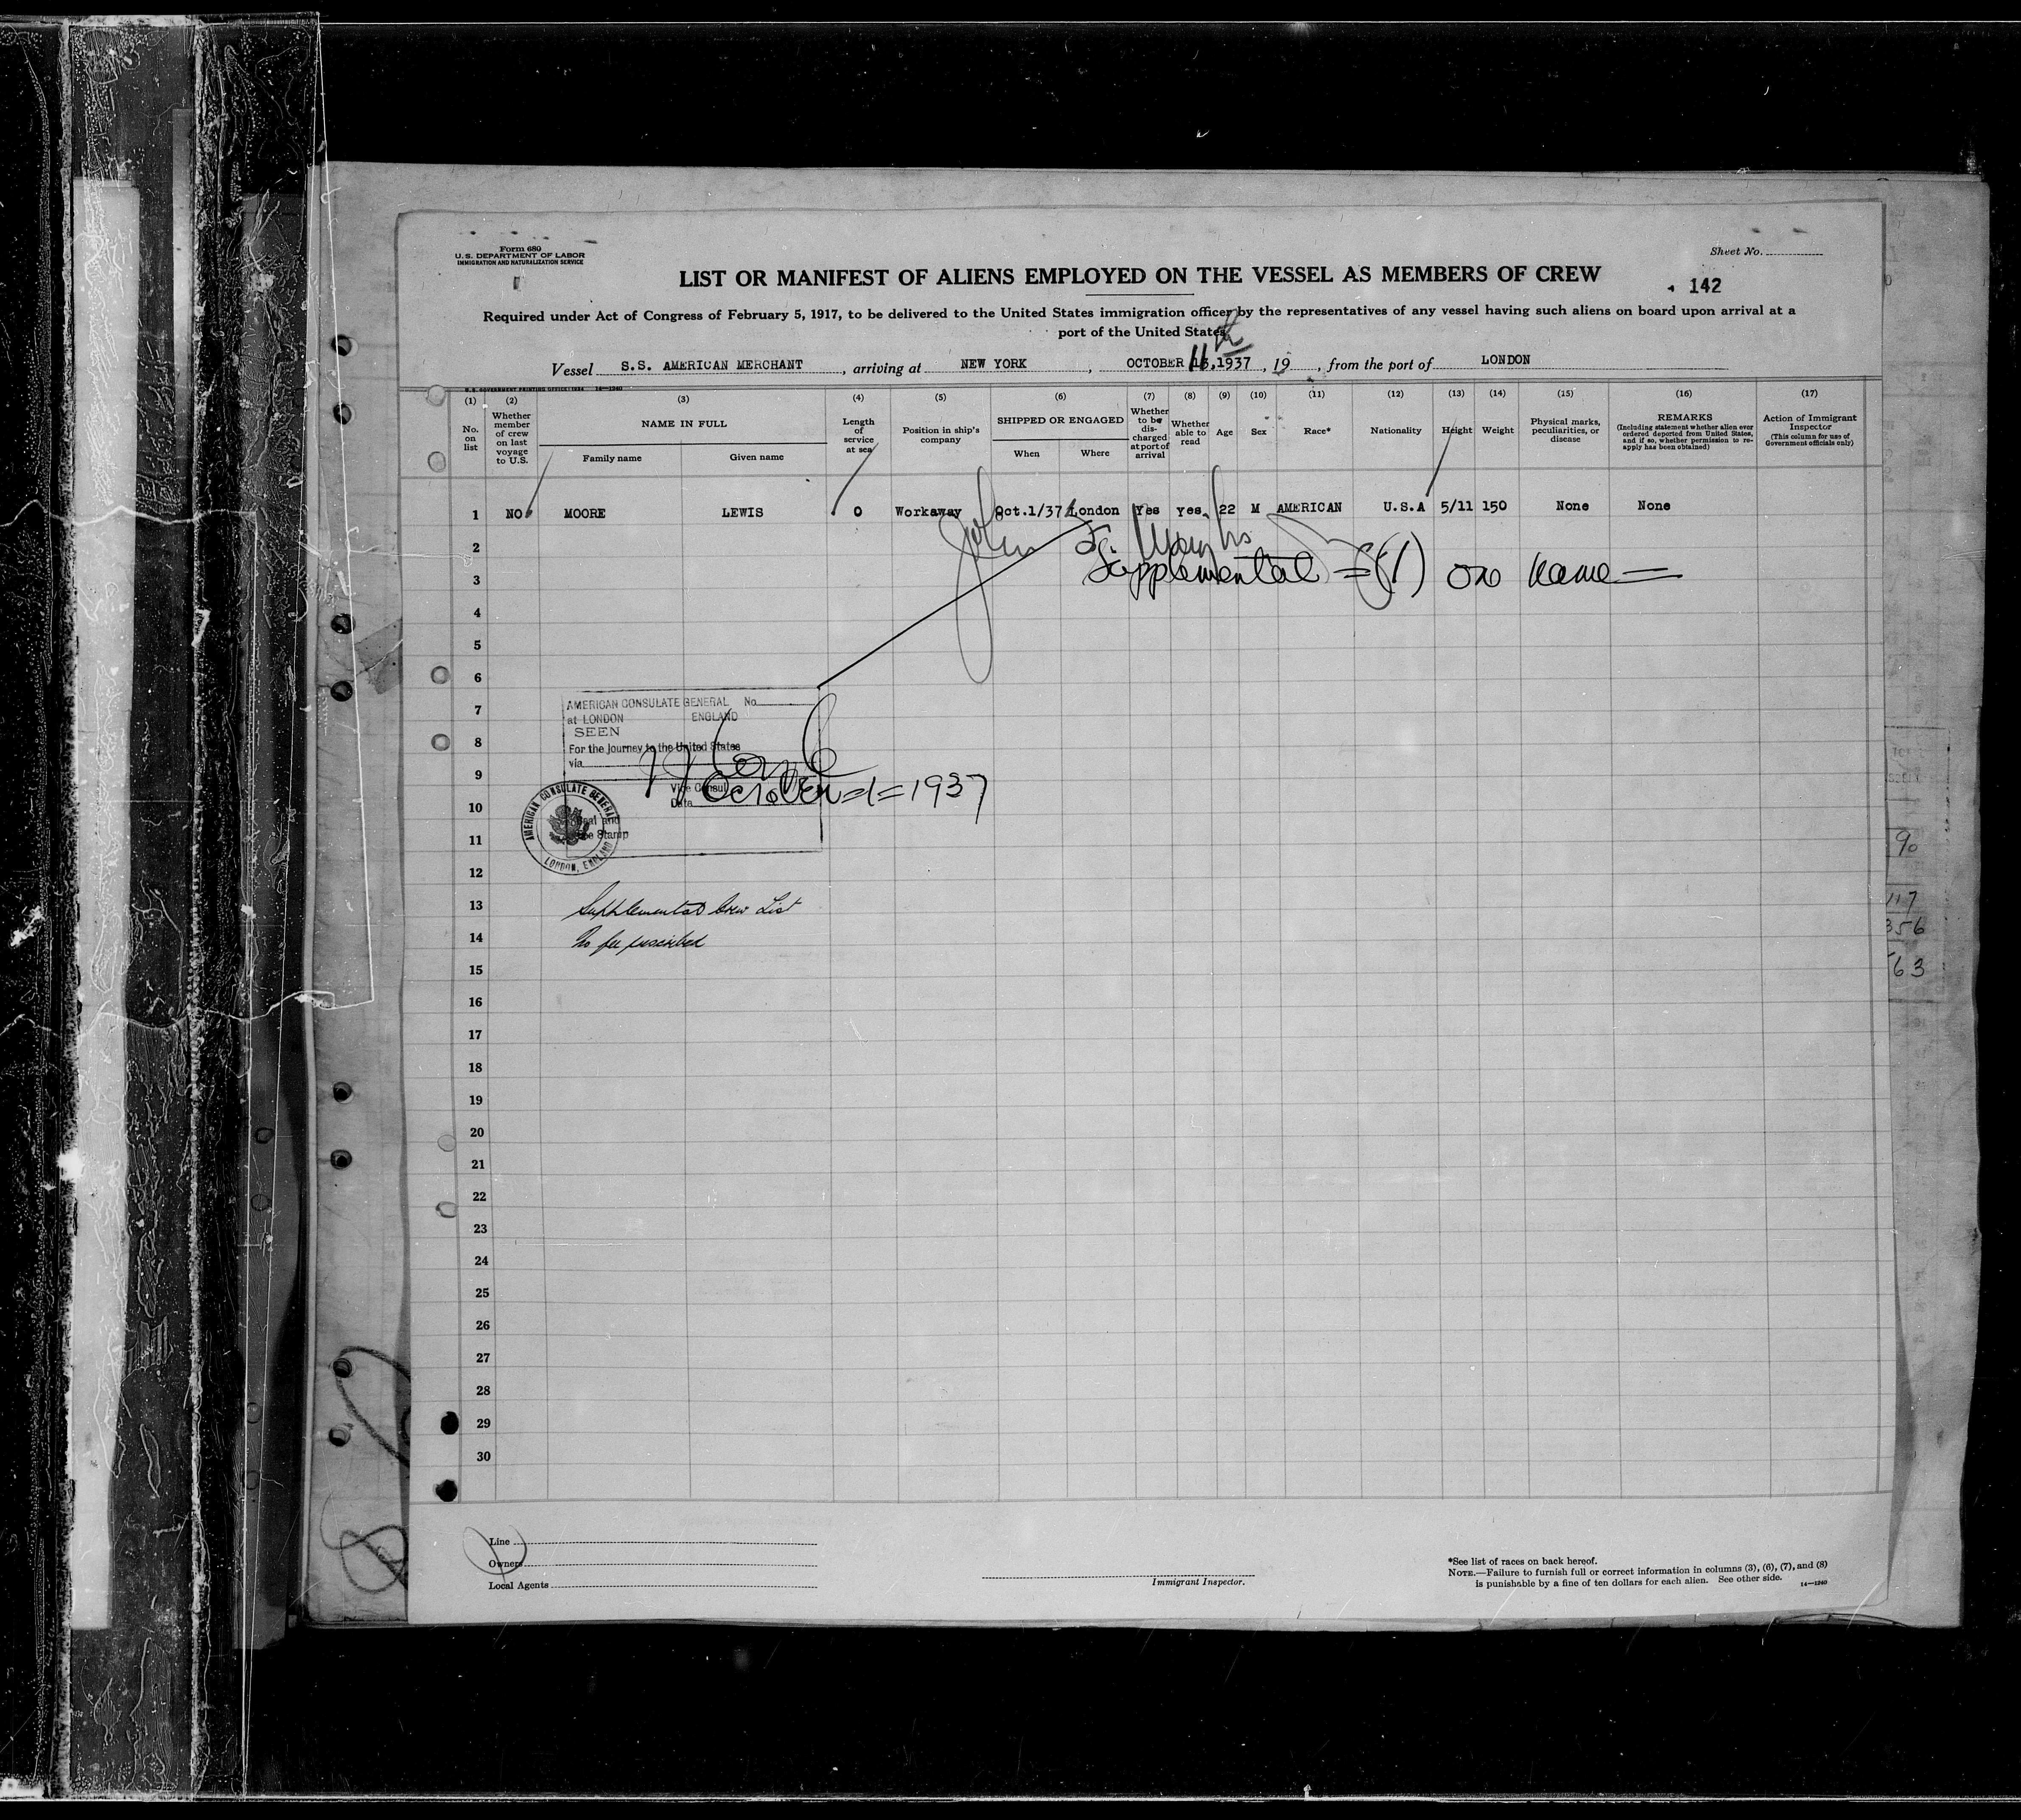 Form 680
U. S. DEPARTMENT OF LABOR
IMMIGRATION AND NATURALIZATION SERVICE
Sheet No.
LIST OR MANIFEST OF ALIENS EMPLOYED ON THE VESSEL AS MEMBERS OF CREW
142
Required under Act of Congress of February 5, 1917, to be delivered to the United States immigration officer by the representatives of any vessel having such aliens on board upon arrival at a
port of the United States
Vessel S.S. AMERICAN MERCHANT , arriving at NEW YORK , OCTOBER 11th ,1937 , 19 , from the port of LONDON
U. S. GOVERNMENT PRINTING OFFICE: 1934 14—1240
(1) (2) (3) (4) (5) (6) (7) (8) (9) (10) (11) (12) (13) (14) (15) (16) (17)
No. on list
Whether member of crew on last voyage to U.S.
NAME IN FULL
Family name Given name
Length of service at sea
Position in ship's company
SHIPPED OR ENGAGED
When Where
Whether to be discharged at port of arrival
Whether able to read
Age
Sex
Race*
Nationality
Height
Weight
Physical marks, peculiarities, or disease
REMARKS
(Including statement whether alien ever ordered deported from United States, and if so, whether permission to reapply has been obtained)
Action of Immigrant Inspector
(This column for use of Government officials only)
1 NO MOORE LEWIS 0 Workaway Oct.1/37 London Yes yes 22 M AMERICAN U.S.A 5/11 150 None None
2 John
3 Supplemental =(1) one name=
4
5
6
7
8
9
10
11
12
13
14
15
16
17
18
19
20
21
22
23
24
25
26
27
28
29
30
AMERICAN CONSULATE GENERAL No
at LONDON ENGLAND
SEEN
For the journey to the United States
via
Vice Consul
October=1=1937
Date
Seal and
Fee Stamp
AMERICAN CONSULATE GENERAL
LONDON, ENGLAND
Supplemental Crew List
No fee prescribed
90
117
356
63
Line
Owners
Local Agents
Immigrant Inspector.
*See list of races on back hereof.
NOTE.—Failure to furnish full or correct information in columns (3), (6), (7), and (8)
is punishable by a fine of ten dollars for each alien. See other side.
14—1240